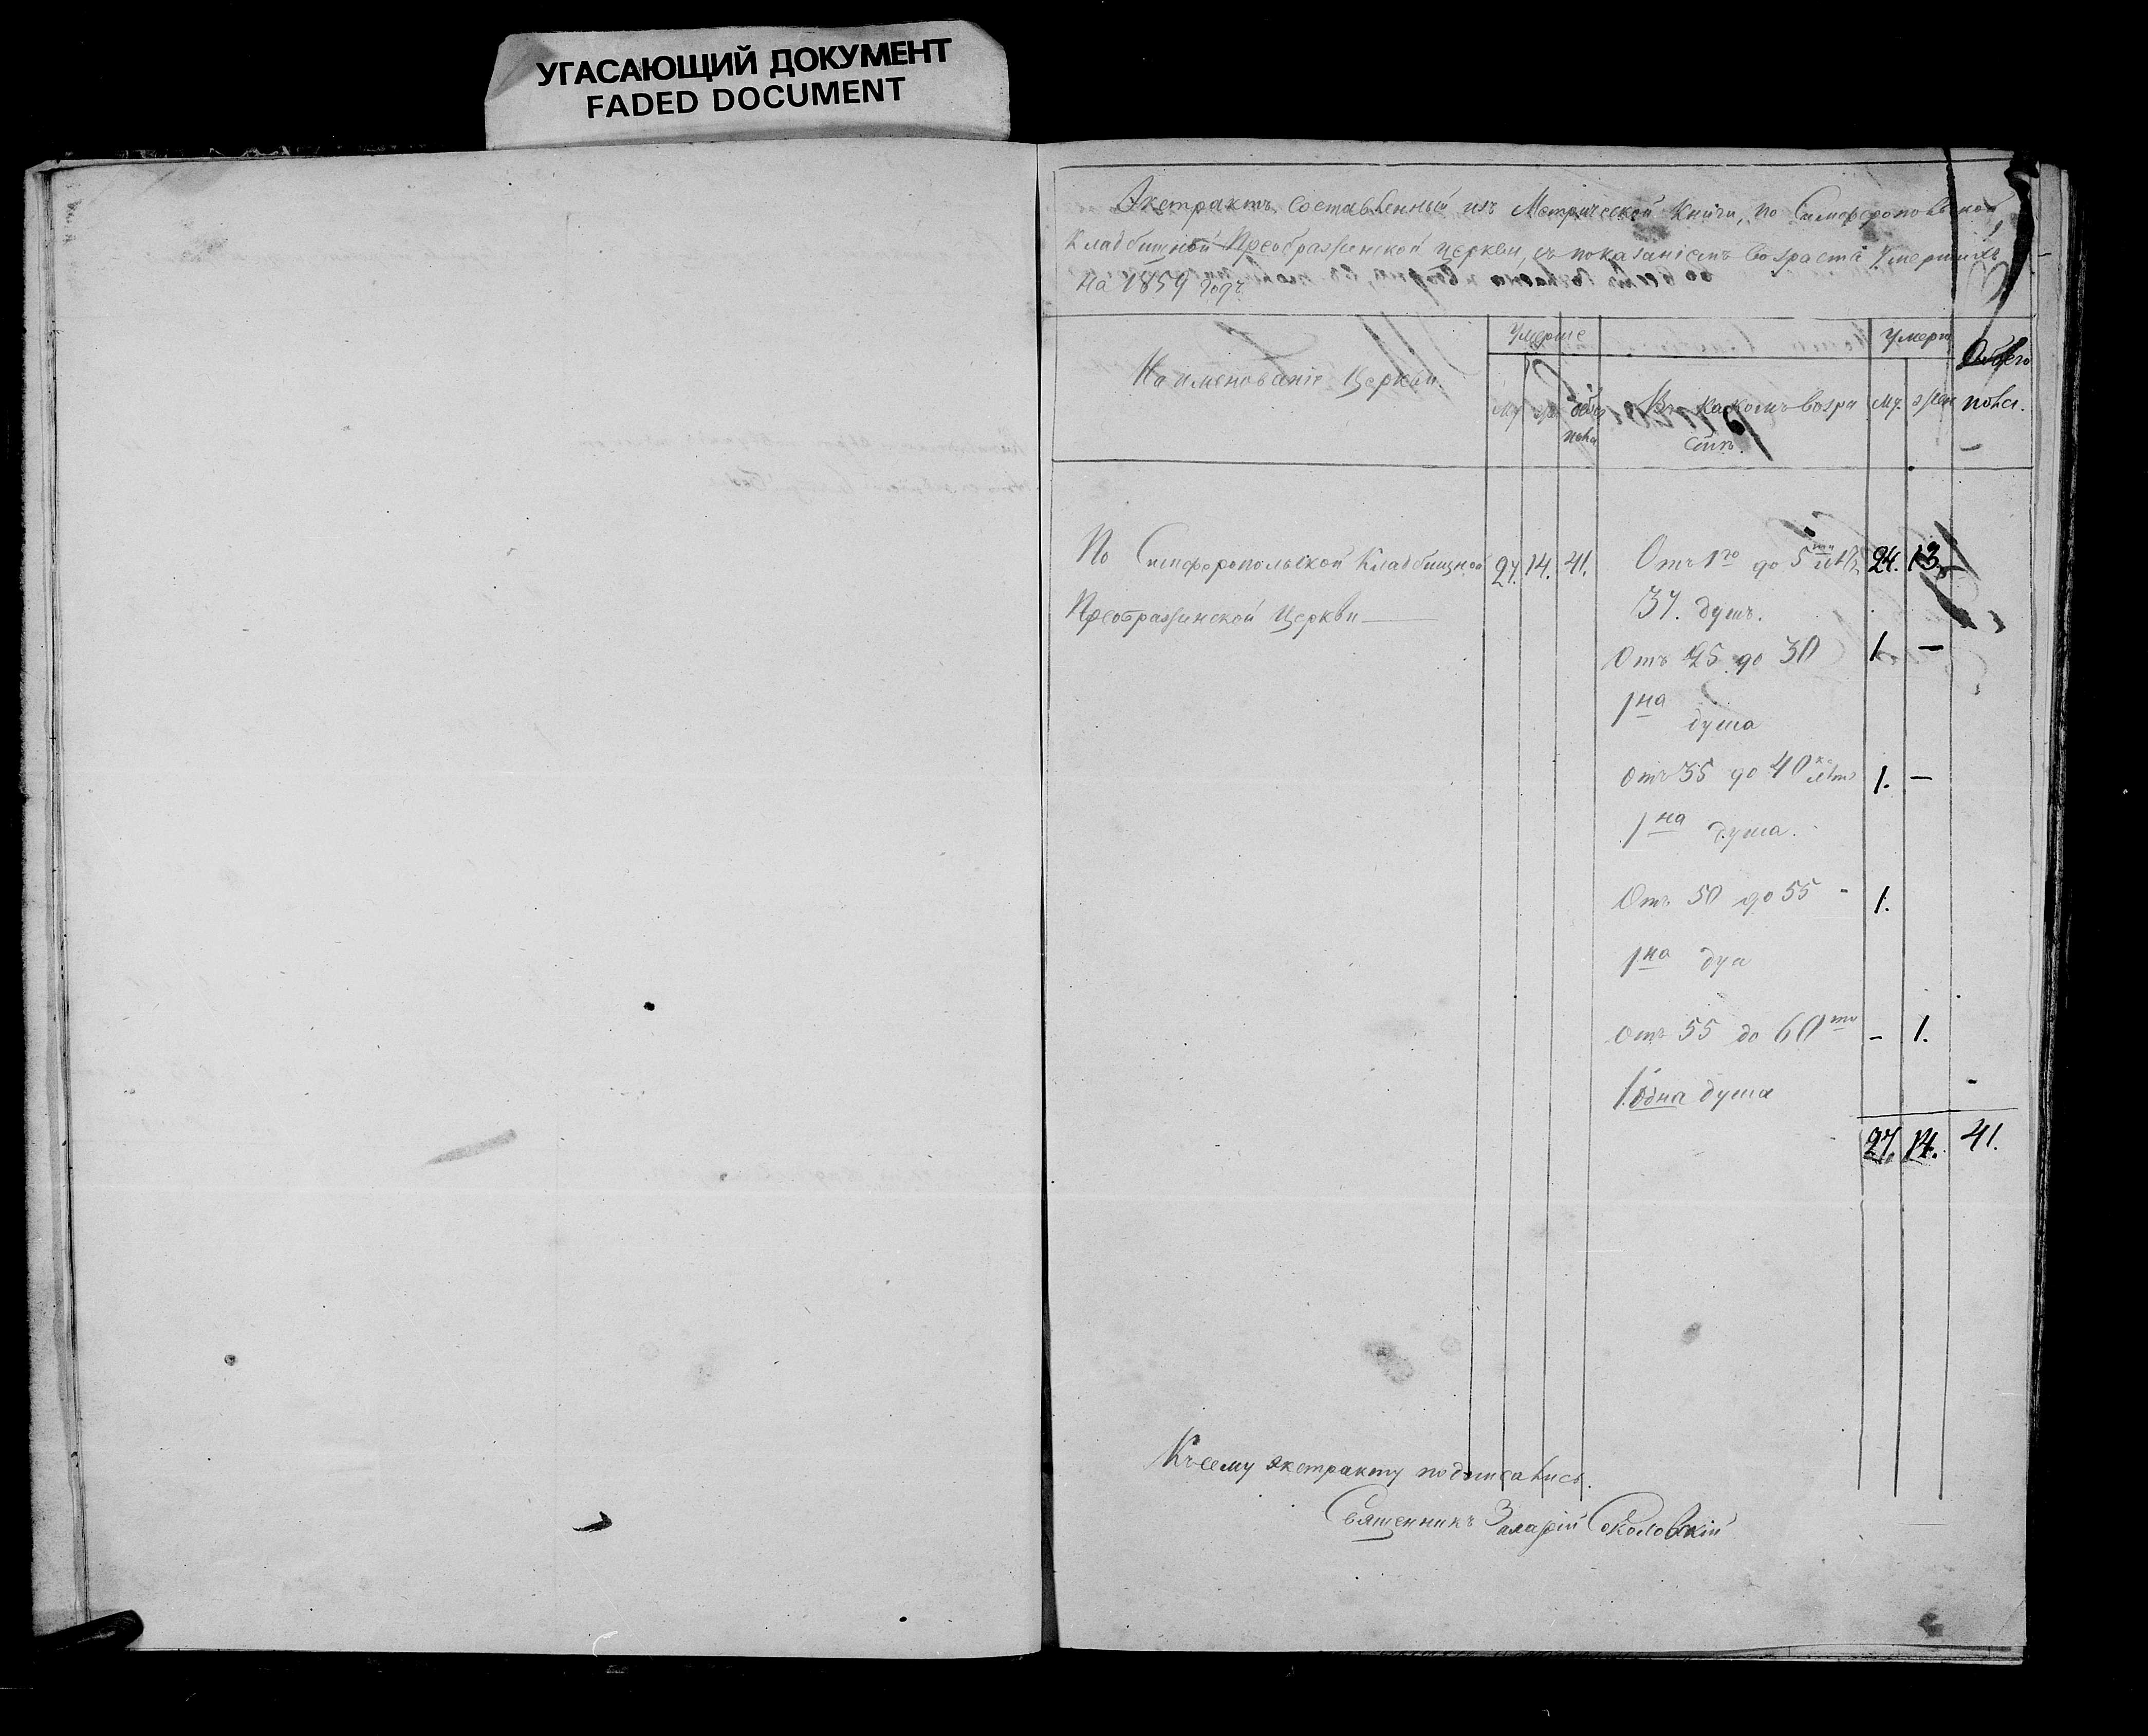 УГАСАЮЩИЙ ДОКУМЕНТ
FADED DOCUMENT
Экстрактъ составленный изъ Метрической Книги, по Симферопольской
Кладбищной Преображенской церкви, съ показаніемъ возраста умершихъ
на 1859 годъ
Наименованіе Церкви.
Умерше
Му
обоего
пола
Въ какомъ возра
стѣ.
Умерш
му.
жен
Обоего
пола.
По Симферопольской Кладбищной 27. 14. 41. Отъ 1го до 5ти лѣтъ 24. 13.
Преображенской Церкви 37. душъ.
Отъ 25 до 30 1. —
1на душа
Отъ 35 до 40 лѣтъ 1. —
1на душа.
Отъ 50 до 55 1.
1на душ
Отъ 55 до 60ти - 1.
1. одна душа
27. 14. 41.
Къ сему экстракту подписались.
Священникъ Соколовскій